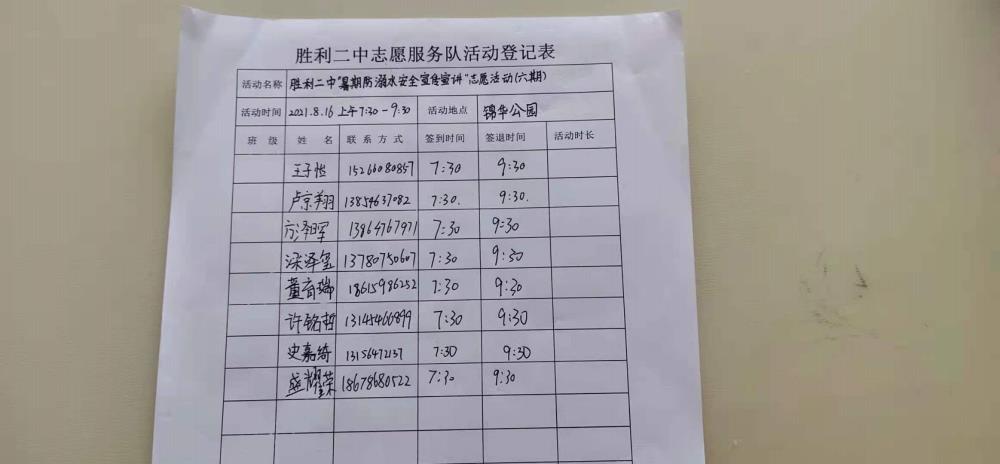 胜利二中志愿服务队活动登记表
活动名称 胜利二中"暑期防溺水安全宣传宣讲"志愿活动(六期)
活动时间 2021.8.16 上午7:30-9:30 活动地点 锦华公园
班 级 姓 名 联系方式 签到时间 签退时间 活动时长
王子怡 15266080857 7:30 9:30
卢京翔 13854637082 7:30. 9:30.
13964767971 7:30 9:30
梁泽玺 13780750607 7:30 9:30
董育瑞 18615986252 7:30 9:30
许铭哲 13145466899 7:30 9:30
史嘉绮 13156472137 7:30 9:30
盛耀荣 18678680522 7:30 9:30